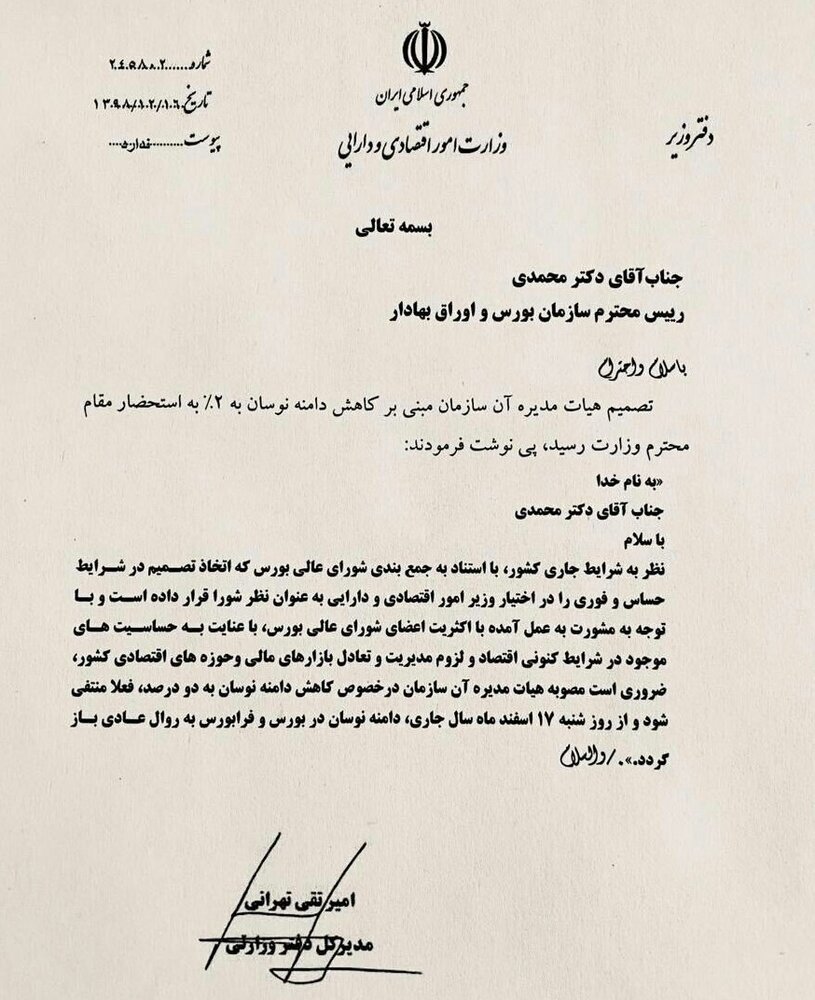 جمهوری اسلامی ایران
وزارت امور اقتصادی و دارایی
دفتر وزیر
شماره......۲۴۵۸۸۰۲
تاریخ ۱۳۹۸/۱۲/۱۶
پیوست..........ندارد....
بسمه تعالی
جناب آقای دکتر محمدی
رییس محترم سازمان بورس و اوراق بهادار
باسلام و احترام
تصمیم هیات مدیره آن سازمان مبنی بر کاهش دامنه نوسان به ۲٪ به استحضار مقام
محترم وزارت رسید، پی نوشت فرمودند:
«به نام خدا
جناب آقای دکتر محمدی
با سلام
نظر به شرایط جاری کشور، با استناد به جمع بندی شورای عالی بورس که اتخاذ تصمیم در شرایط
حساس و فوری را در اختیار وزیر امور اقتصادی و دارایی به عنوان نظر شورا قرار داده است و با
توجه به مشورت به عمل آمده با اکثریت اعضای شورای عالی بورس، با عنایت به حساسیت های
موجود در شرایط کنونی اقتصاد و لزوم مدیریت و تعادل بازارهای مالی وحوزه های اقتصادی کشور،
ضروری است مصوبه هیات مدیره آن سازمان درخصوص کاهش دامنه نوسان به دو درصد، فعلا منتفی
شود و از روز شنبه ۱۷ اسفند ماه سال جاری، دامنه نوسان در بورس و فرابورس به روال عادی باز
گردد.». / والسلام
امیر تقی تهرانی
مدیرکل دفتر وزارتی